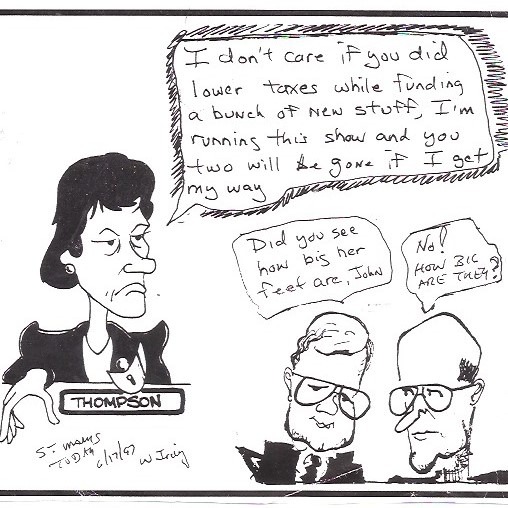 I don't care if you did
lower taxes while funding
a bunch of new stuff, I'm
running this show and you
two will be gone if I get
my way
Did you see
how big her
feet are, John
No!
HOW BIG
ARE THEY?
THOMPSON
ST. MARYS
TODAY 6/17/97 W Irving